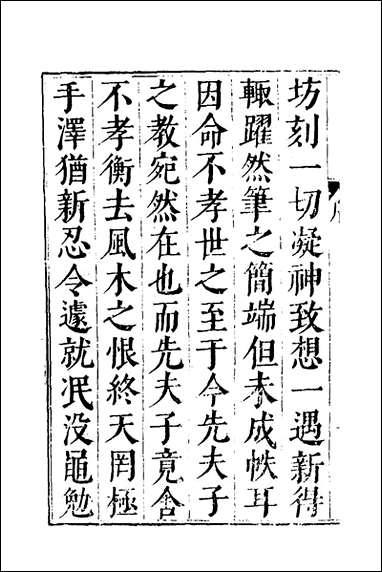 坊刻一切凝神致想一遇新得
輙躍然筆之簡端但未成帙耳
因命不孝世之至于今先夫子
之教宛然在也而先夫子竟舍
不孝衡去風木之恨終天罔極
手澤猶新忍令遽就泯没黽勉